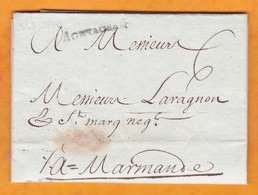 MONTAUBAN
A Messieurs 6
Messieurs Laragnon
& St marq negts
A = Marmande